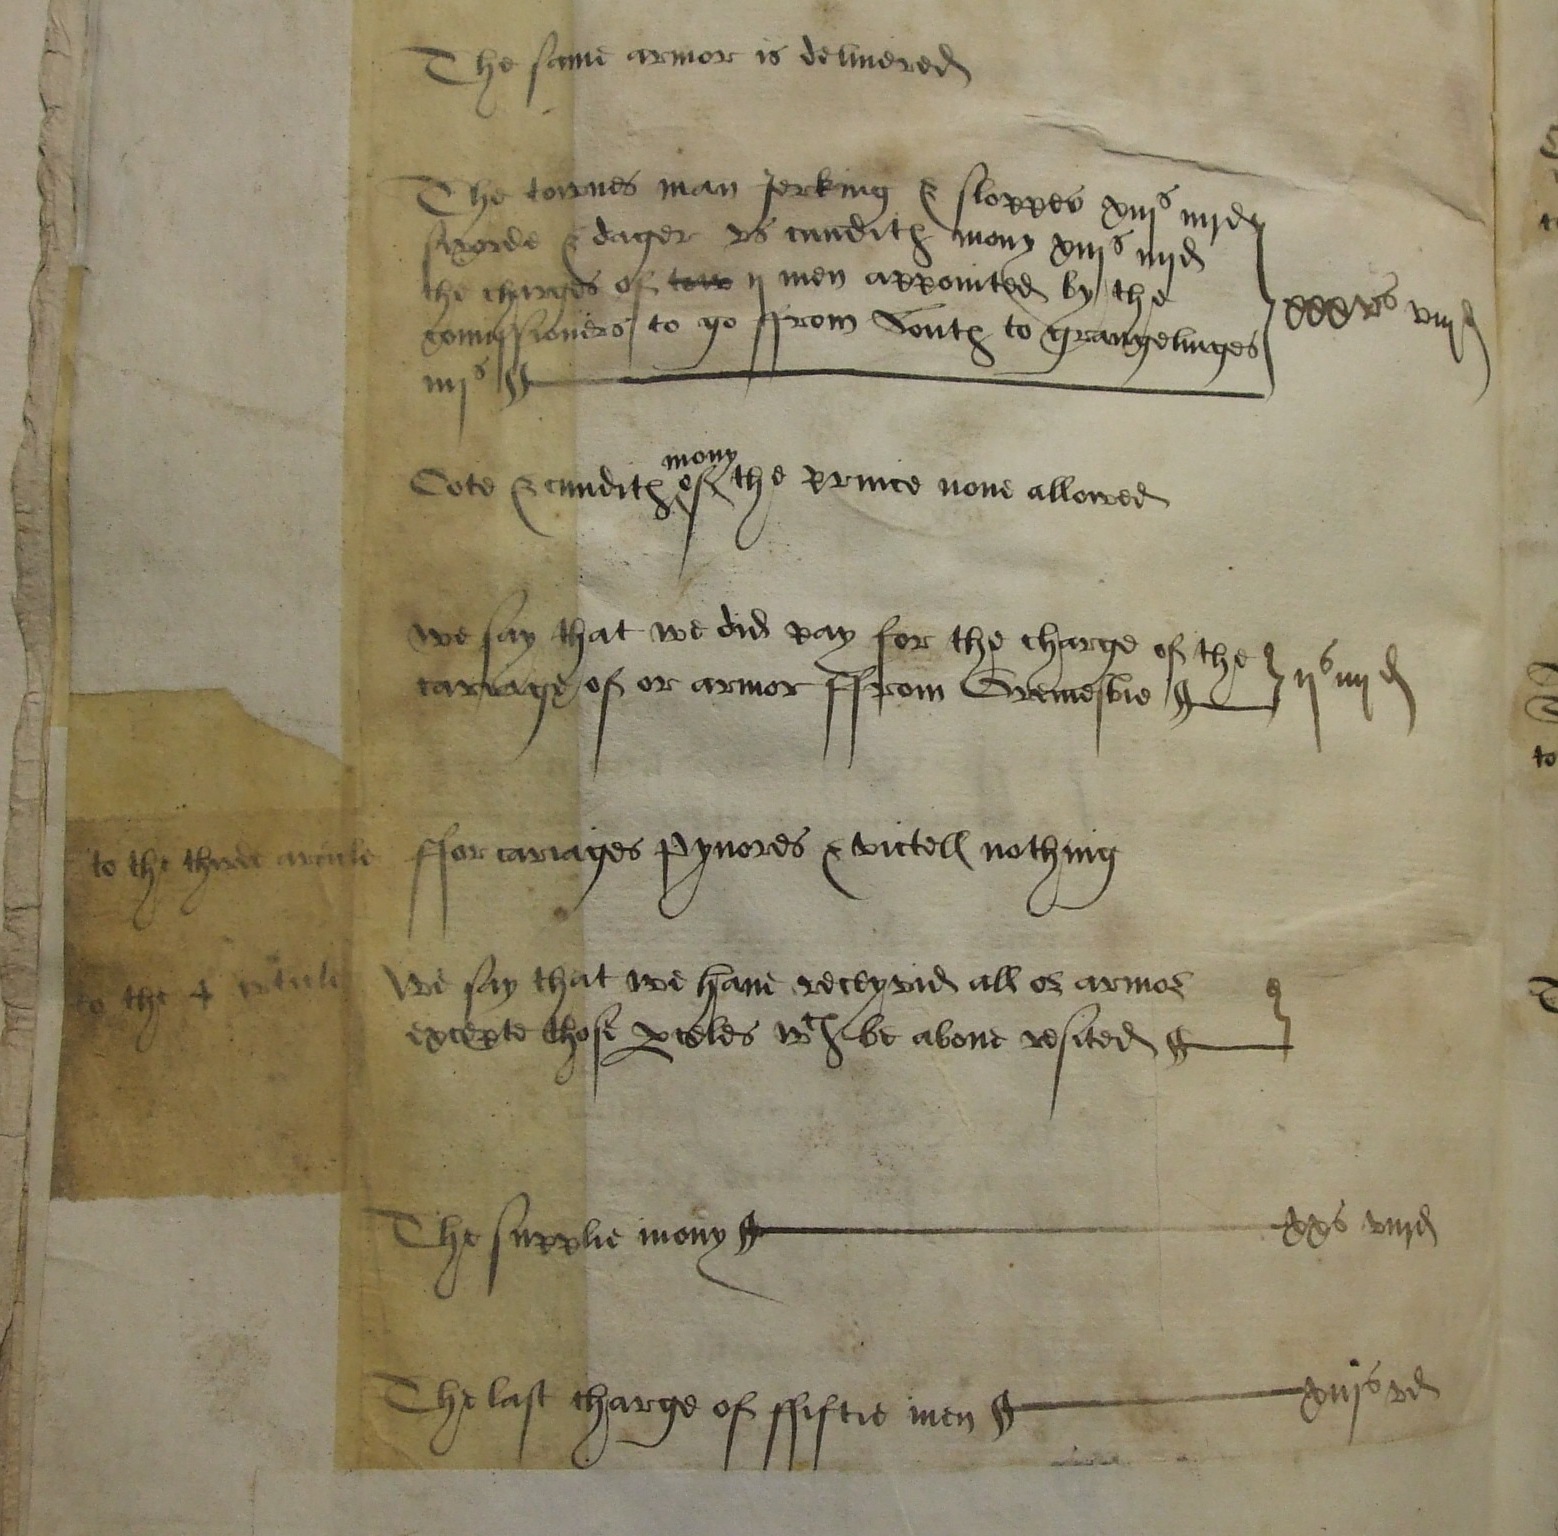 The same armor is delivered
The townes man Jerking & sloppes xiijs iiijd
sworde & dager vs cundith mony xiijs iiijd
the charges of tow ij men appointed by the
comissioners to go ffrom South to grangelinges
iiijs
xxxvs viijd
mony
Cote & cundith of the prince none allowed
we say that we did pay for the charge of the
cariage of or armor ffrom Gremesbie
ijs iiijd
to the third article ffor cariages pynores & victell nothing
to the 4 article We say that we have receyvid all or armor
excepte those pcelles wch be above resited
The supplie mony xxs viijd
The last charge of ffiftie men xiijs vd